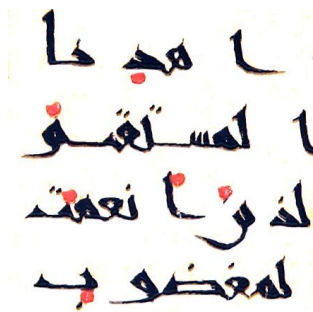 ا هد نا
ا لمستقيم
لذين ا نعمت
لمغضو ب